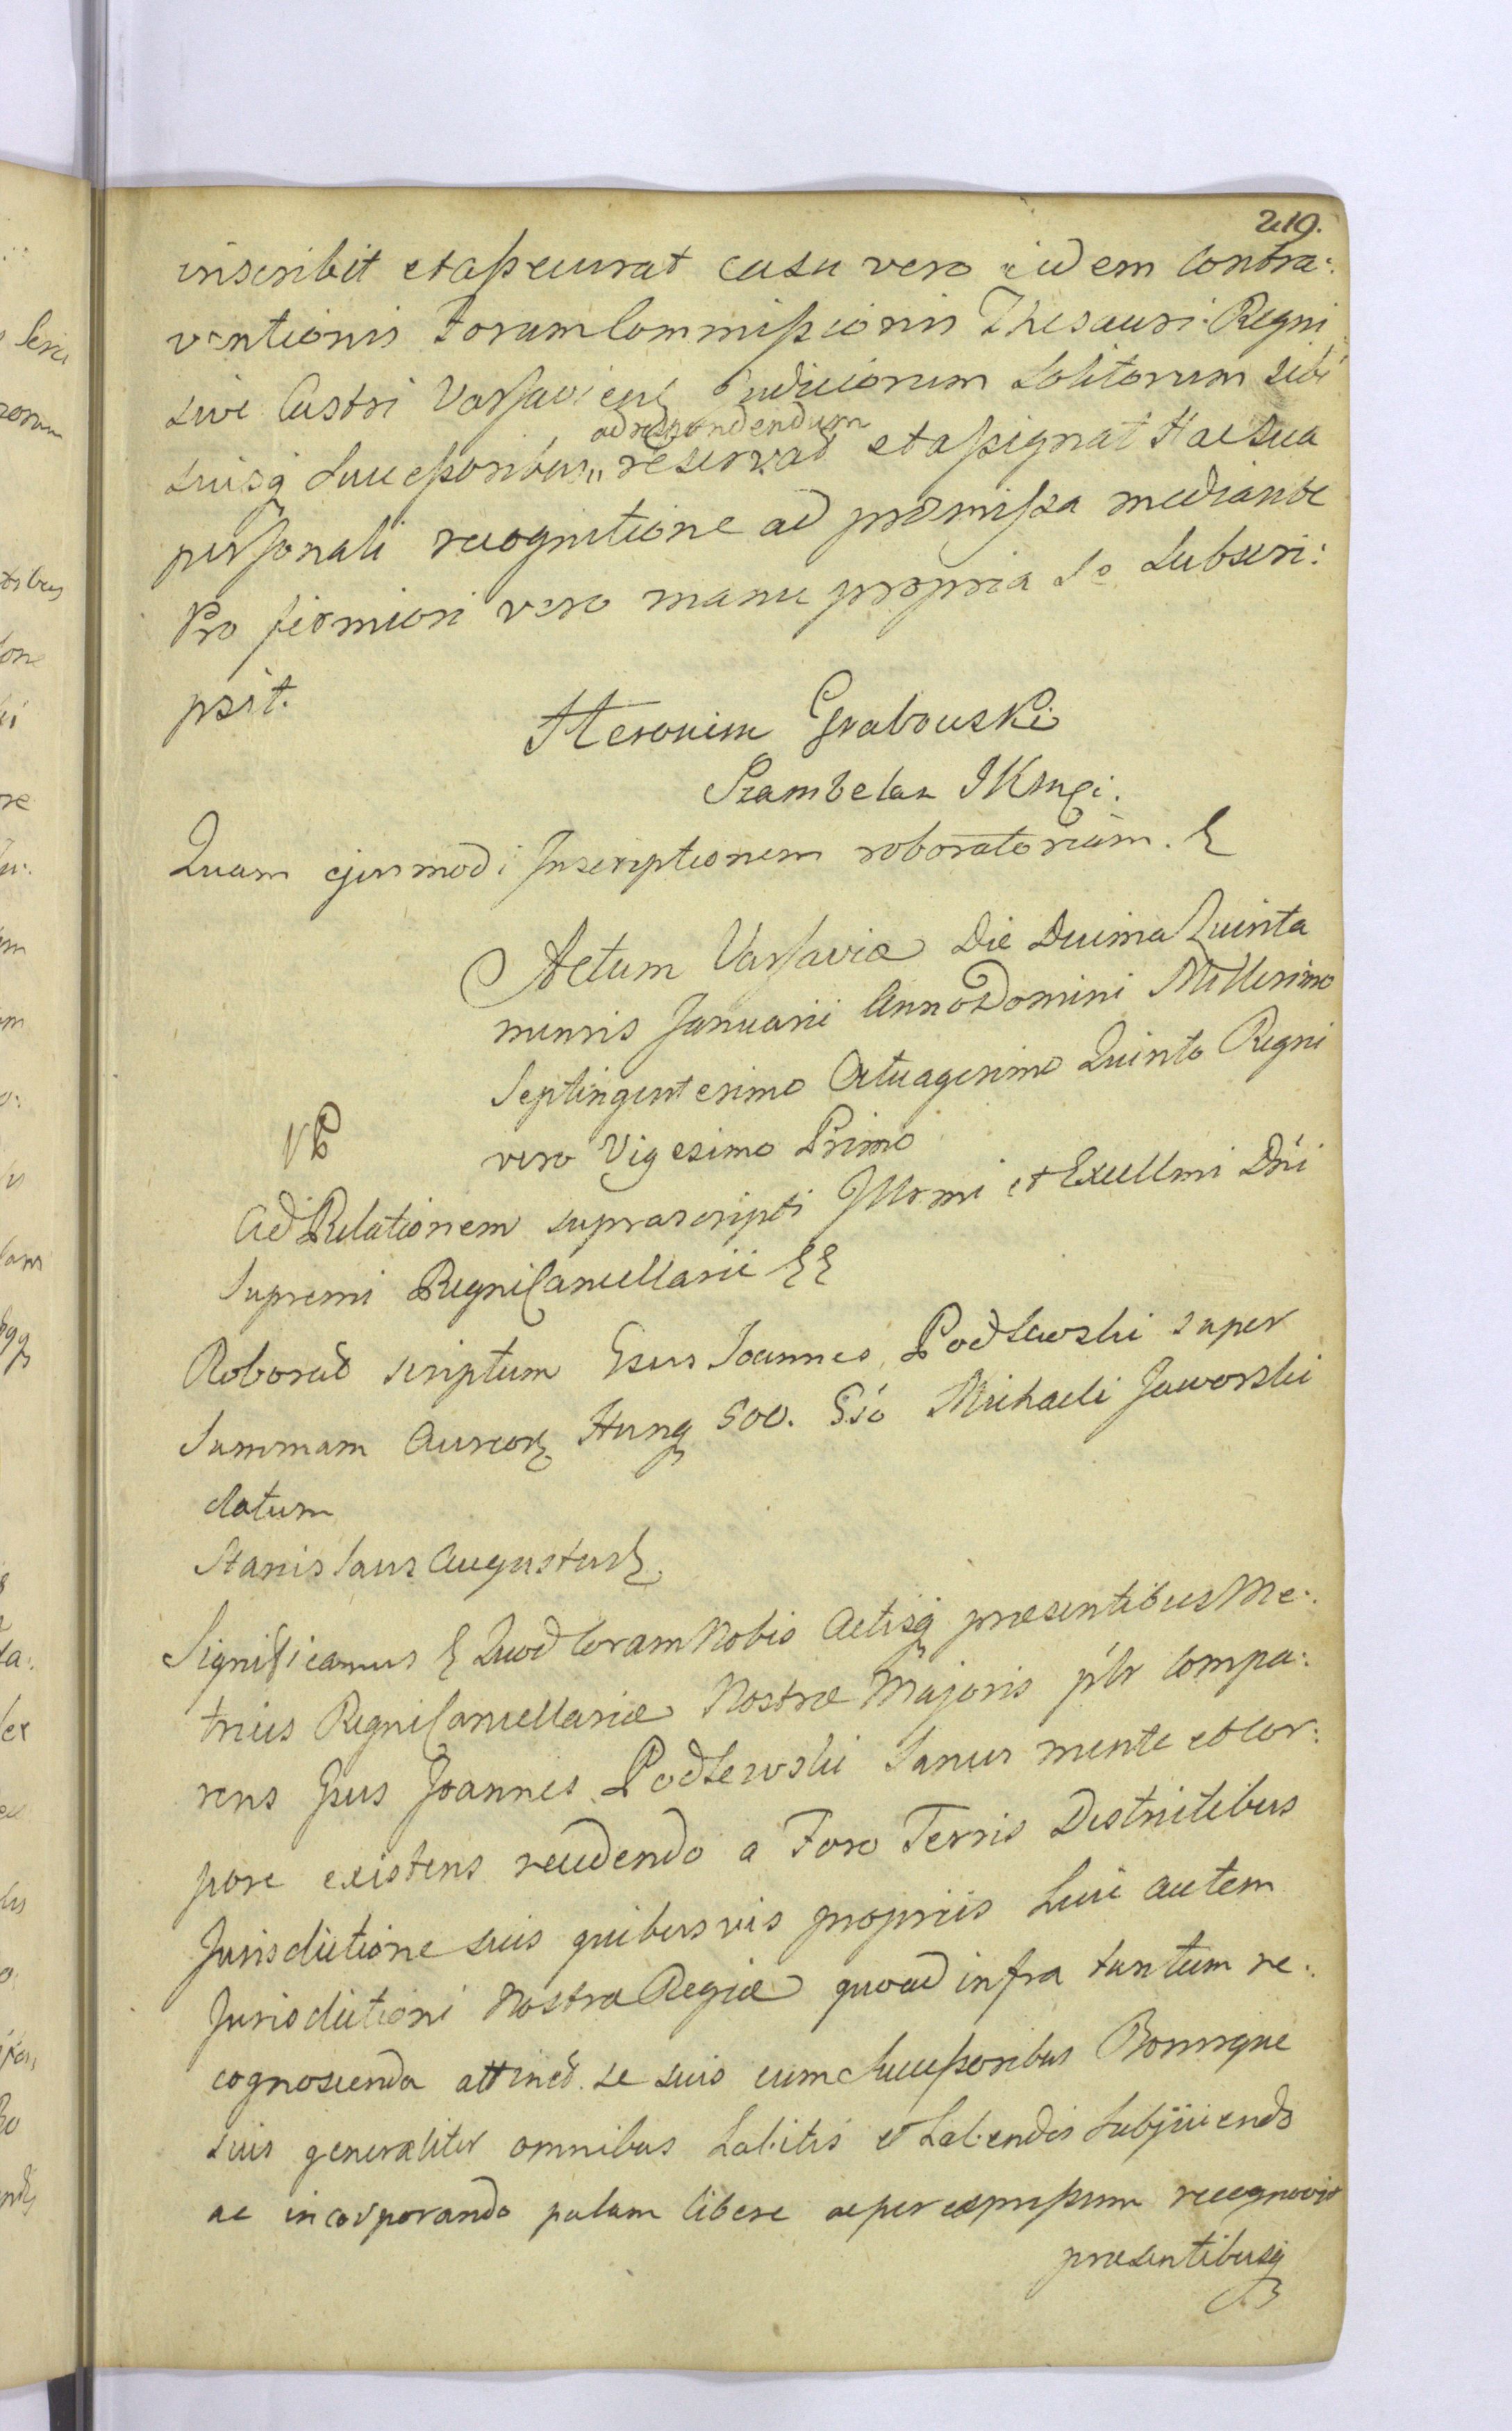 219.
inscribit et assecurat casu vero eidem Contra:
ventionis Forum Commissionis Thesauri Regni
sive Castri Varsaviens Judiciorum Solitorum sibi
ad respondendum
suisq Successoribus reservat et assignat Hac sua
personali recognitione ad præmissa mediante
Pro firmiori vero manu propria se Subscri:
psit.
Heronim Grabowski
Szambelan JKMci.
Quam ejusmodi Inscriptionem roboratoriam. &
Actum Varsaviæ Die Decima Quinta
mensis Januarii Anno Domini Millesimo
Septingentesimo Octuagesimo Quinto Regni
vero Vigesimo Primo
Ad Relationem suprascripti Illrmi et Excellmi Dni
Supremi Regni Cancellarii &&
Roborat scriptum Gsus Joannes Podlewski super
Summam Aureor Hung 500. Gso Michaeli Jaworski
datum
Stanislaus Augustus &.
Significamus & Quod Coram Nobis Actisq præsentibus Me:
tricis Regni Cancellariæ Nostræ Majoris plr Compa:
rens Gsus Joannes Podlewski Sanus mente et Cor:
pore existens recedendo a Foro Terris Districtibus
Jurisdictione suis quibusvis propriis huic autem
Jurisdictioni Nostræ Regiæ quoad infra tantum re:
cognoscenda attinet se suis cum Successoribus Bonisque
suis generaliter omnibus habitis et habendis Subjiciendo
ac incorporando palam libere ac per expressum recognovit
præsentibusq